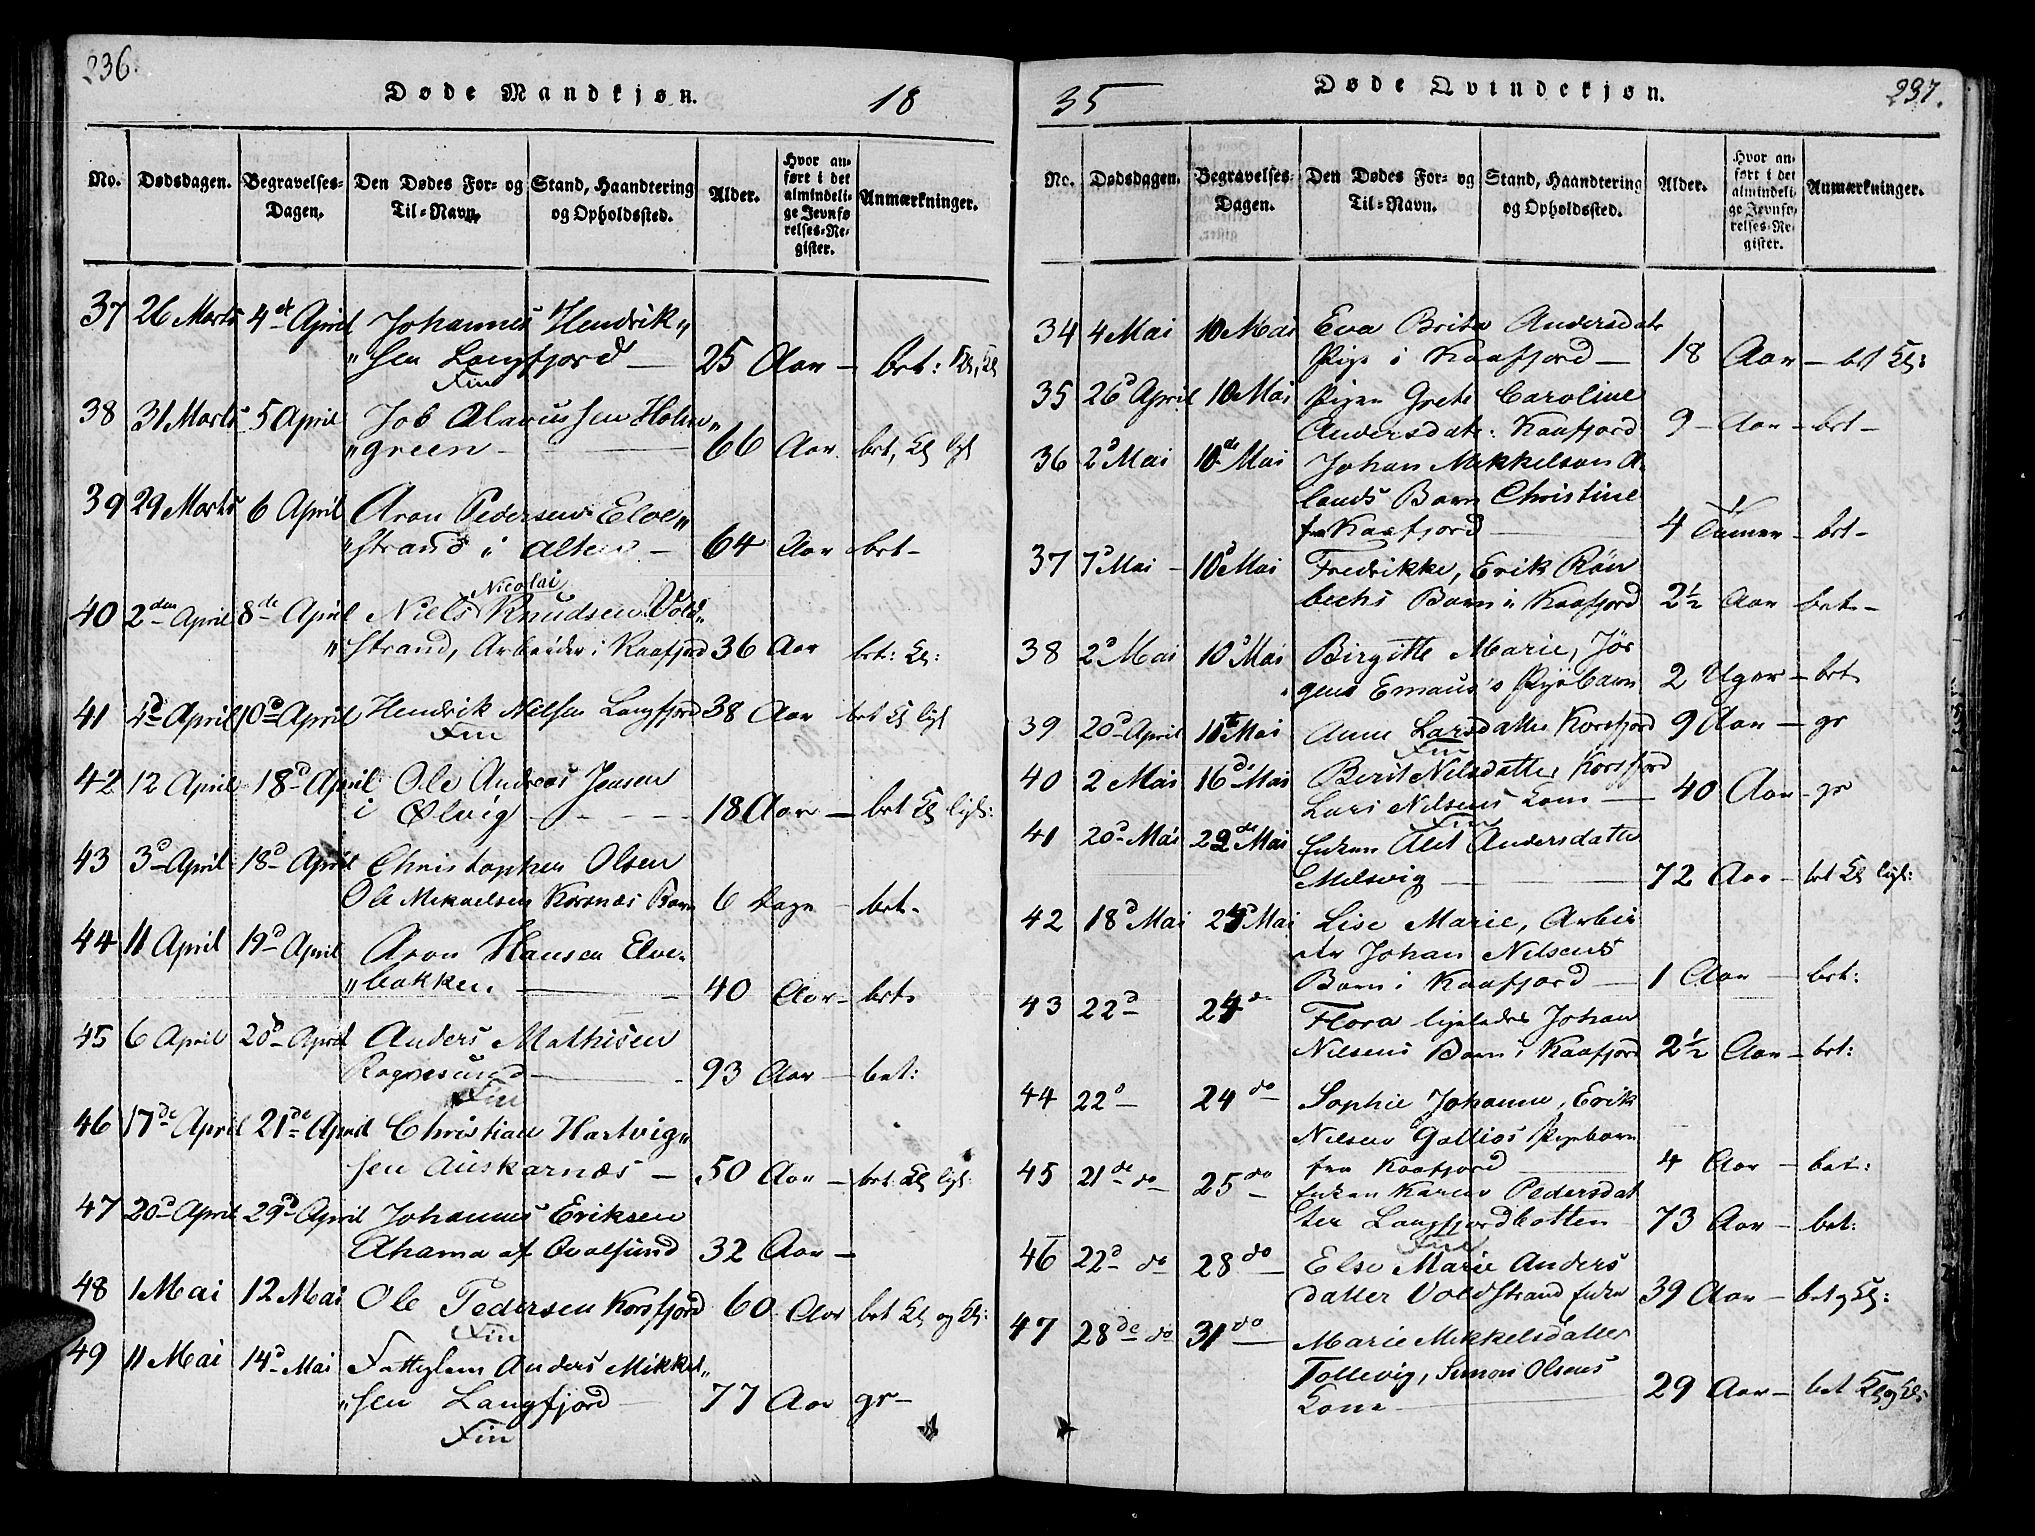 236.
Døde Mandkjøn.
18
No.
Dødsdagen.
Begravelses-
Dagen.
Den Dødes For- og
Til-Navn.
Stand, Haandtering
og Opholdssted.
Alder.
Hvor an-
ført i det
almindeli-
ge Jevnfø
relses-Re-
gister.
Anmærkninger.
37 26 Marts 4de April Johannes Hendrik„
„sen Langfjord — 25 Aar — bet:
Fin
38 31 Marts 5 April Job Olavussen Holm„
„green — 66 Aar. bet,
39 29 Marts 6 April Aron Pedersen Elve„
„strand i Alten — 64 Aar bet-
Nicolai
40 2den April 8de April Niels Knudsen Vold„
„strand, Arbeider i Kaafjord 36 Aar bet: Kl:
41 4d April 10d April Hendrik Nilsen Langfjord 38 Aar bet Kl
Fin
42 12 April 18d April Ole Andreas Jensen
i Ølvig — 18 Aar — bet Kl
43 3d April 18d April Christopher Olsen
Ole Mikaelsen Korsnæs Barn 6 Dage — bet-
44 11 April 19d April Aron Hansen Elve-
„bakken — 40 Aar — bet.
45 6 April 20d April Anders Mathisen
Rognesund — 93 Aar — bet:
Fin
46 17de April 21de April Christian Hartvig„
sen Auskarnæs — 50 Aar — bet: Kl
47 20d April 29d April Johannes Eriksen
Ahama af Qvalsund 32 Aar —
48 1 Mai 12 Mai Ole Pedersen Korsfjord 60 Aar bet Kl og Kl:
Fin
49 11 Mai 14d Mai Fattiglem Anders Mikkel„
„sen Langfjord 77 Aar gr —
Fin
35
Døde Qvindekjøn.
237.
No.
Dødsdagen.
Begravelses-
Dagen.
Den Dødes For- og
Til-Navn.
Stand, Haandtering
og Opholdssted.
Alder.
Hvor an-
ført i det
almindeli-
ge Jevnfø-
relses-Re-
gister.
Anmærkninger.
34 4 Mai 10 Mai Eva Brita Andersdatr
Pige i Kaafjord — 18 Aar — bet Kl:
35 26d April 10 Mai Pigen Grete Caroline
Andersdatr: Kaafjord 9 — Aar — bet —
36 2d Mai 10de Mai Johan Mikkelsen A-
lands Barn Christine
fra Kaafjord — 4 Timer — bet —
37 7d Mai — 10d Mai Fredrikke, Erik Rön
bechs Barn i Kaafjord 2½ Aar bet —
38 2d Mai 10d Mai Birgitte Marie, Jør
gens Emaus's Pigebarn 2 Uger — bet.
39 20d April 11te Mai Anne Larsdatter Korsfjord 9 Aar — gr
Fin
40 2 Mai 16d Mai Berit Nilsdatter Korsfjord
Lars Nilsens Kone — 40 Aar — gr
Fin
41 20d Mai 22de Mai Enken Alet Andersdatter
Melsvig — 72 Aar — bet Kl
42 18d Mai 24d Mai Lise Marie, Arbei
der Johan Nilsens
Barn i Kaafjord — 1 Aar — bet:
43 22d — 24 do Flora ligeledes Johan
Nilsens Barn i Kaafjord 2½ Aar — bet:
44 22d — 24 do Sophie Johanne, Erik
Nilsen Gallios Pigebarn
fra Kaafjord 4 Aar — bet:
45 21de do 25 do Enken Karen Pedersdat
ter Langfjordbotten 73 Aar — bet:
Fin
46 22d do 28 do Else Marie Anders
datter Voldstrand Enke 39 Aar — bet og Kl:
47 28de do 31 do Marie Mikkelsdatter
Tollevig, Simon Olsens
Kone — 29 Aar — bet Kl og Kl: